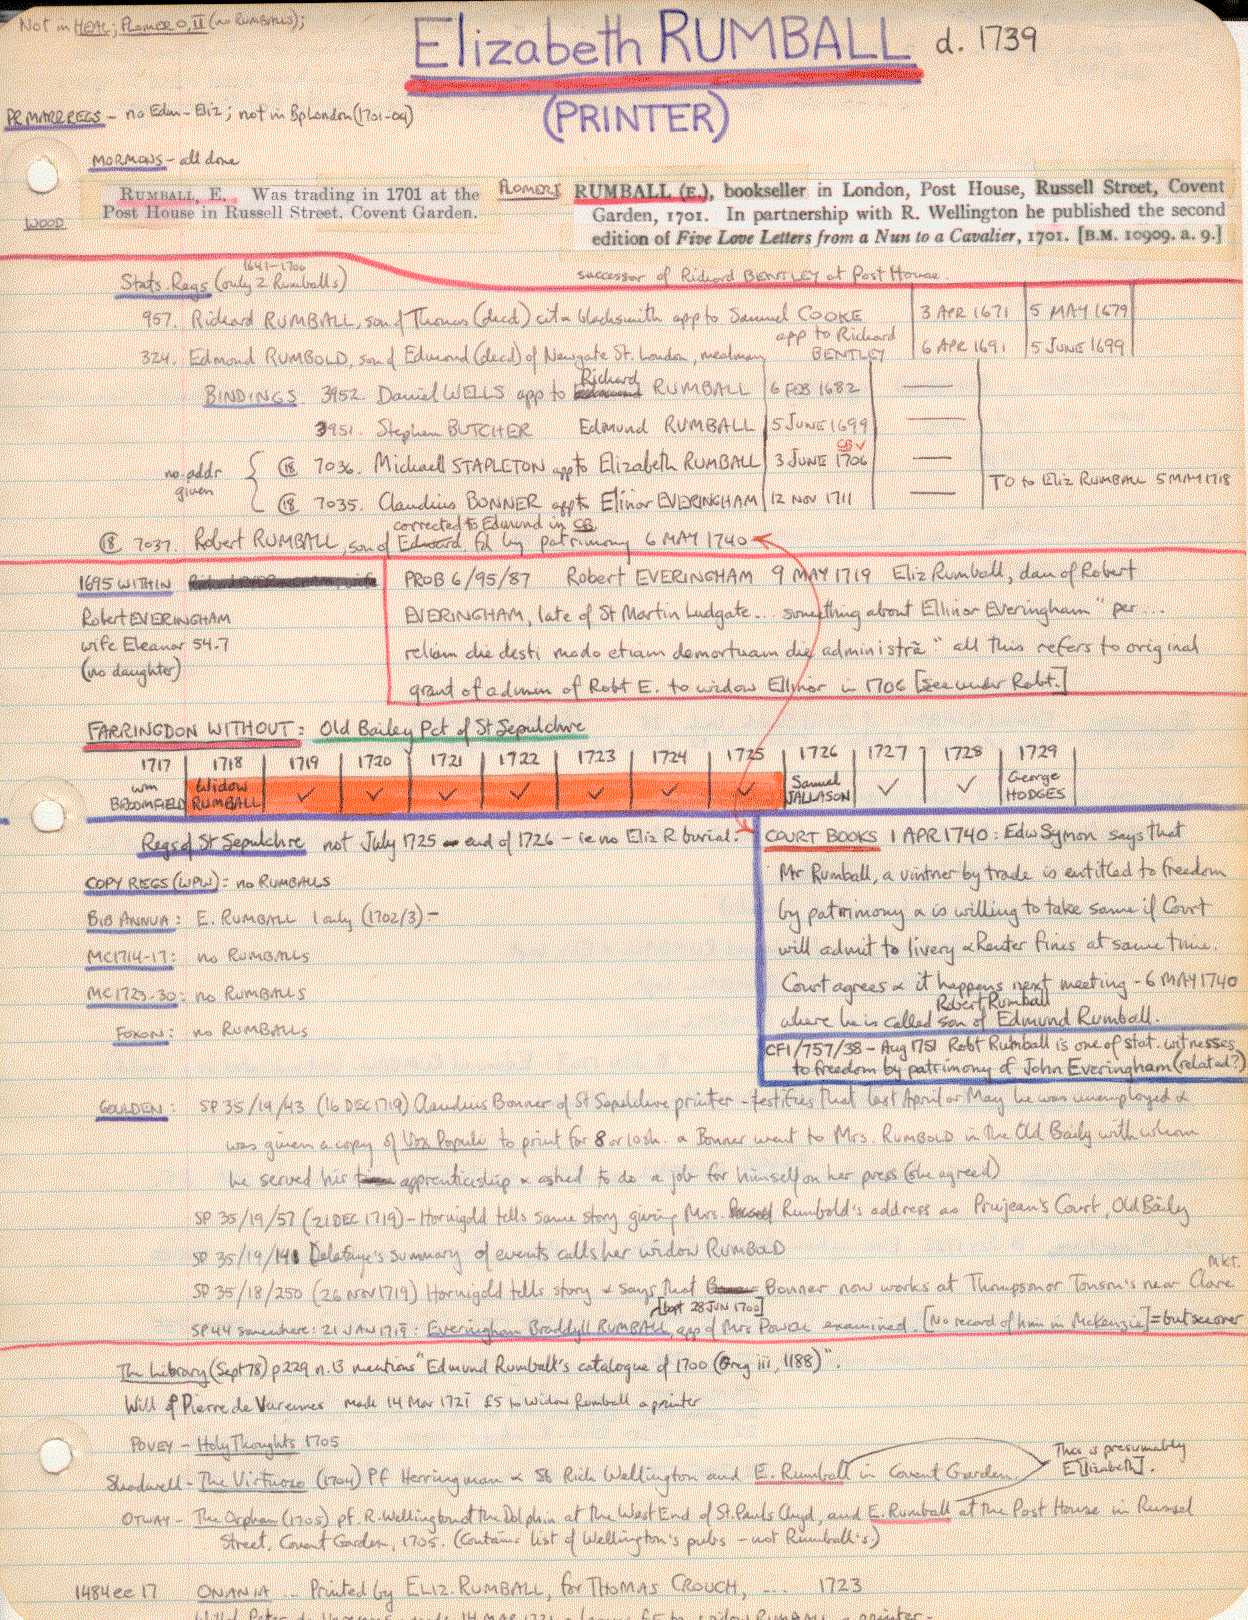 Not in HEAL; PLOMER O, II (no RUMBALLS);
Elizabeth RUMBALL d. 1739
(PRINTER)
PR MARR REGS - no Edm - Eliz; not in Bp London (1701-09)
MORMONS - all done
WOOD
RUMBALL, E. Was trading in 1701 at the
Post House in Russell Street, Covent Garden.
PLOMER I
RUMBALL (E.), bookseller in London, Post House, Russell Street, Covent
Garden, 1701. In partnership with R. Wellington he published the second
edition of Five Love Letters from a Nun to a Cavalier, 1701. [B.M. 10909. a. 9.]
successor of Richard BENTLEY at Post House.
1641-1700
Stats. Regs (only 2 Rumballs)
957. Richard RUMBALL, son of Thomas (decd) cit & blacksmith app to Samuel COOKE 3 APR 1671 5 MAY 1679
324. Edmond RUMBOLD, son of Edmond (decd) of Newgate St. London, mealman app to Richard BENTLEY 6 APR 1691 5 JUNE 1699
BINDINGS 3952. Daniel WELLS app to Richard RUMBALL 6 FEB 1682 —
3951. Stephen BUTCHER Edmund RUMBALL 5 JUNE 1699 —
CB ✓
no addr given
(18) 7036. Michaell STAPLETON app to Elizabeth RUMBALL 3 JUNE 1706 —
(18) 7035. Claudius BONNER app to Elinor EVERINGHAM 12 NOV 1711 — TO to Eliz RUMBALL 5 MAY 1718
corrected to Edmund in CB
(18) 7037. Robert RUMBALL, son of Edward. fd by patrimony 6 MAY 1740
1695 WITHIN
Robert EVERINGHAM
wife Eleanor 54.7
(no daughter)
PROB 6/95/87 Robert EVERINGHAM 9 MAY 1719 Eliz Rumball, dau of Robert
EVERINGHAM, late of St Martin Ludgate... something about Ellinor Everingham "per...
relicm die desti modo etiam demortuam die administrã" all this refers to original
grant of admin of Robt E. to widow Ellinor in 1706 [see under Robt.]
FARRINGDON WITHOUT: Old Bailey Pct of St Sepulchre
1717 1718 1719 1720 1721 1722 1723 1724 1725 1726 1727 1728 1729
Wm BROOMFIELD Widow RUMBALL ✓ ✓ ✓ ✓ ✓ ✓ ✓ Samuel JALLASON ✓ ✓ George HODGES
Regs of St Sepulchre not July 1725 - end of 1726 - ie no Eliz R burial.
COPY REGS (WPW): no RUMBALLS
BIB ANNUA: E. RUMBALL 1 only (1702/3) -
MC1714-17: no RUMBALLS
MC1723-30: no RUMBALLS
FOXON: no RUMBALLS
COURT BOOKS 1 APR 1740: Edw Symon says that
Mr Rumball, a vintner by trade is entitled to freedom
by patrimony & is willing to take same if Court
will admit to livery & Renter fines at same time.
Court agrees & it happens next meeting - 6 MAY 1740
Robert Rumball
where he is called son of Edmund Rumball.
CF1/757/38 - Aug 1751 Robt Rumball is one of stat. witnesses
to freedom by patrimony of John Everingham (related?)
GOULDEN: SP 35/19/43 (16 DEC 1719) Claudius Bonner of St Sepulchre printer - testifies that last April or May he was unemployed &
was given a copy of Vox Populi to print for 8 or 10 sh. & Bonner went to Mrs. RUMBOLD in the Old Baily with whom
he served his apprenticeship & asked to do a job for himself on her press (she agreed)
SP 35/19/57 (21 DEC 1719) - Hornigold tells same story giving Mrs. Rumbold's address as Prujean's Court, Old Baily
SP 35/19/141 Delafaye's summary of events calls her widow RUMBOLD
SP 35/18/250 (26 NOV 1719) Hornigold tells story & says that Bonner now works at Thompson or Tonson's near Clare Mkt.
[bapt 28 JUN 1700]
SP44 somewhere: 21 JAN 1718: Everingham Braddyll RUMBALL, app of Mrs Powell examined. [No record of him in McKenzie] = but see over
The Library (Sept 78) p229 n.13 mentions "Edmund Rumball's catalogue of 1700 (Greg iii, 1188)".
Will of Pierre de Varennes made 14 Mar 1721 £5 to Widow Rumball a printer
POVEY - Holy Thoughts 1705
Shadwell - The Virtuoso (1704) Pf Herringman & Sb Rich Wellington and E. Rumball in Covent Garden.
This is presumably E[lizabeth].
OTWAY - The Orphan (1705) pf. R. Wellington at the Dolphin at the West End of St. Pauls Chyd, and E. Rumball at the Post House in Russel
Street, Covent Garden, 1705. (Contains list of Wellington's pubs - not Rumball's.)
1484 ee 17 ONANIA ... Printed by ELIZ. RUMBALL, for THOMAS CROUCH, ... 1723